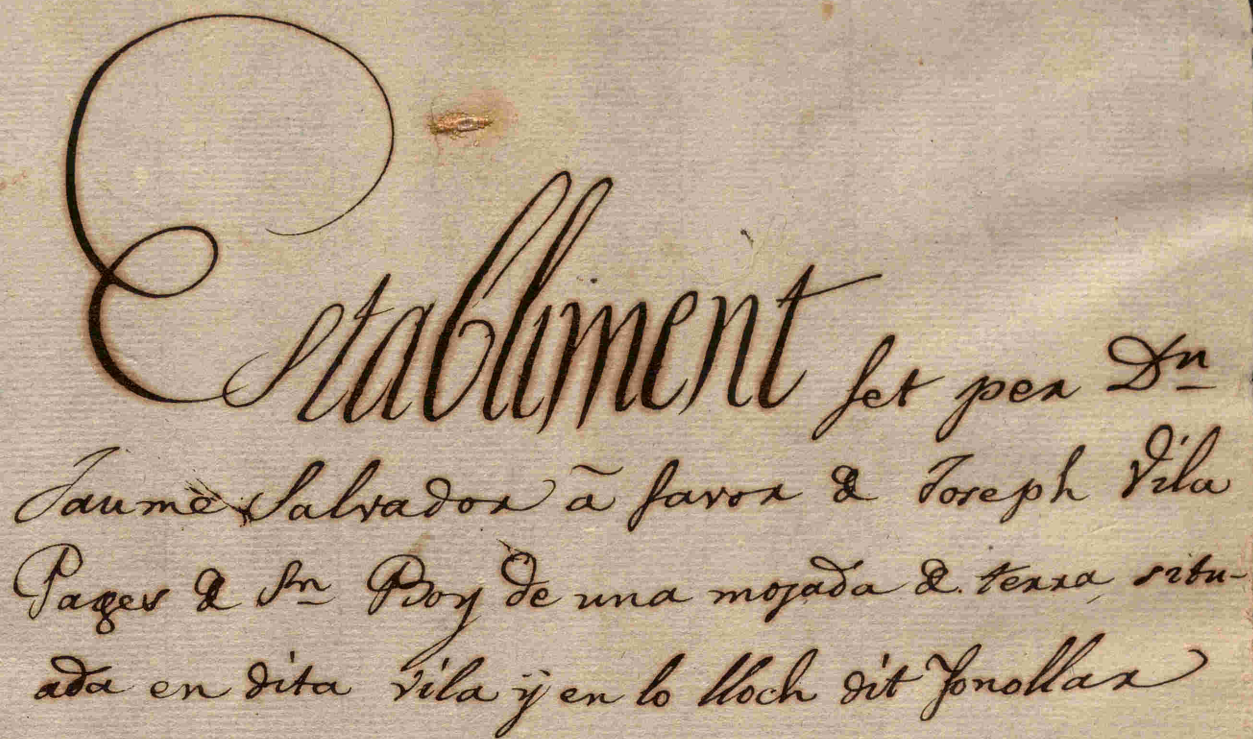 Establiment fet per Dn
Jaume Salvador â favor de Joseph Vila
Pages de Sn Boy de una mojada de terra situ-
ada en dita vila ÿ en lo lloch dit Fonollar